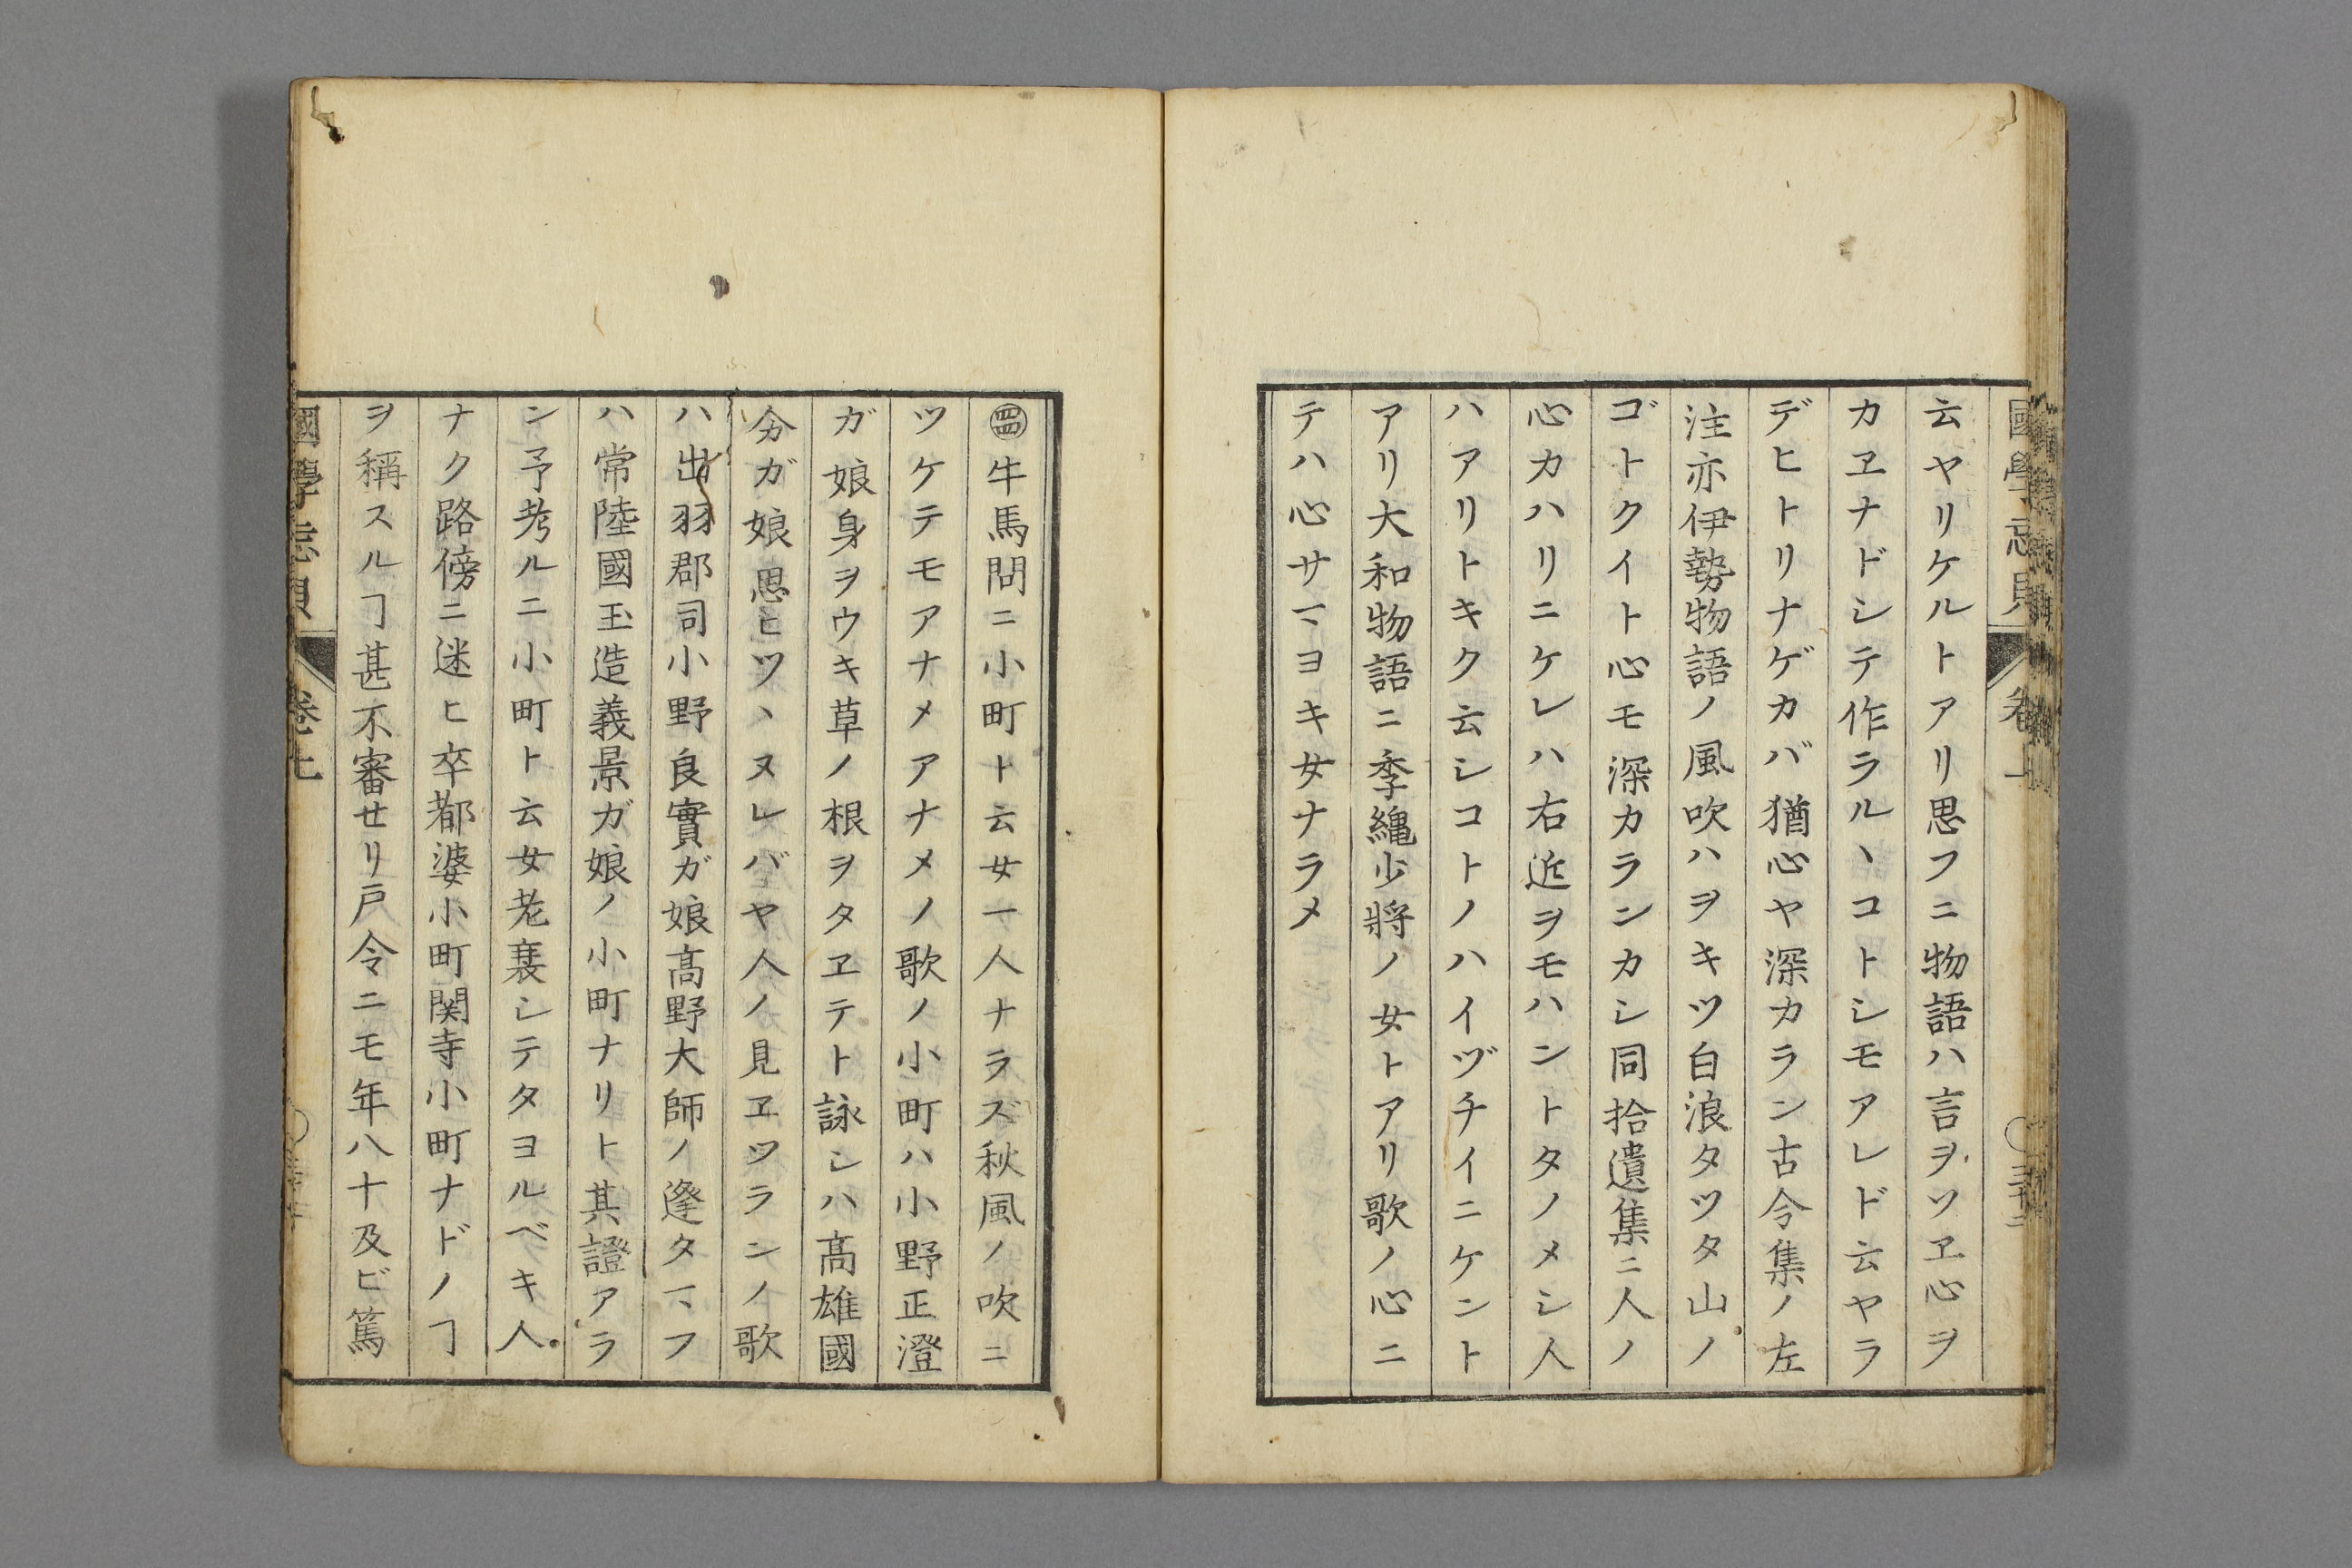 云ヤリケルトアリ思フニ物語ハ言ヲソヱ心ヲ
カヱナドシテ作ラルヽコトシモアレド云ヤラ
デヒトリナゲカバ猶心ヤ深カラン古今集ノ左
注亦伊勢物語ノ風吹ハヲキツ白浪タツタ山ノ
ゴトクイト心モ深カランカシ同拾遺集ニ人ノ
心カハリニケレハ右近ヲモハントタノメシ人
ハアリトキク云シコトノハイヅチイニケント
アリ大和物語ニ季縄少將ノ女トアリ歌ノ心ニ
テハ心サマヨキ女ナラメ
㊃牛馬問ニ小町ト云女一人ナラズ秋風ノ吹ニ
ツケテモアナメアナメノ歌ノ小町ハ小野正澄
ガ娘身ヲウキ草ノ根ヲタヱテト詠シハ髙雄國
分ガ娘思ヒツヽヌレバヤ人ノ見ヱツランノ歌
ハ出羽郡司小野良實ガ娘髙野大師ノ逢タマフ
ハ常陸國玉造義景ガ娘ノ小町ナリト其證アラ
ン予考ルニ小町ト云女老衰シテタヨルベキ人
ナク路傍ニ迷ヒ卒都婆小町関寺小町ナドノヿ
ヲ稱スルヿ甚不審せリ戸令ニモ年八十及ビ篤
國學忘貝 卷上